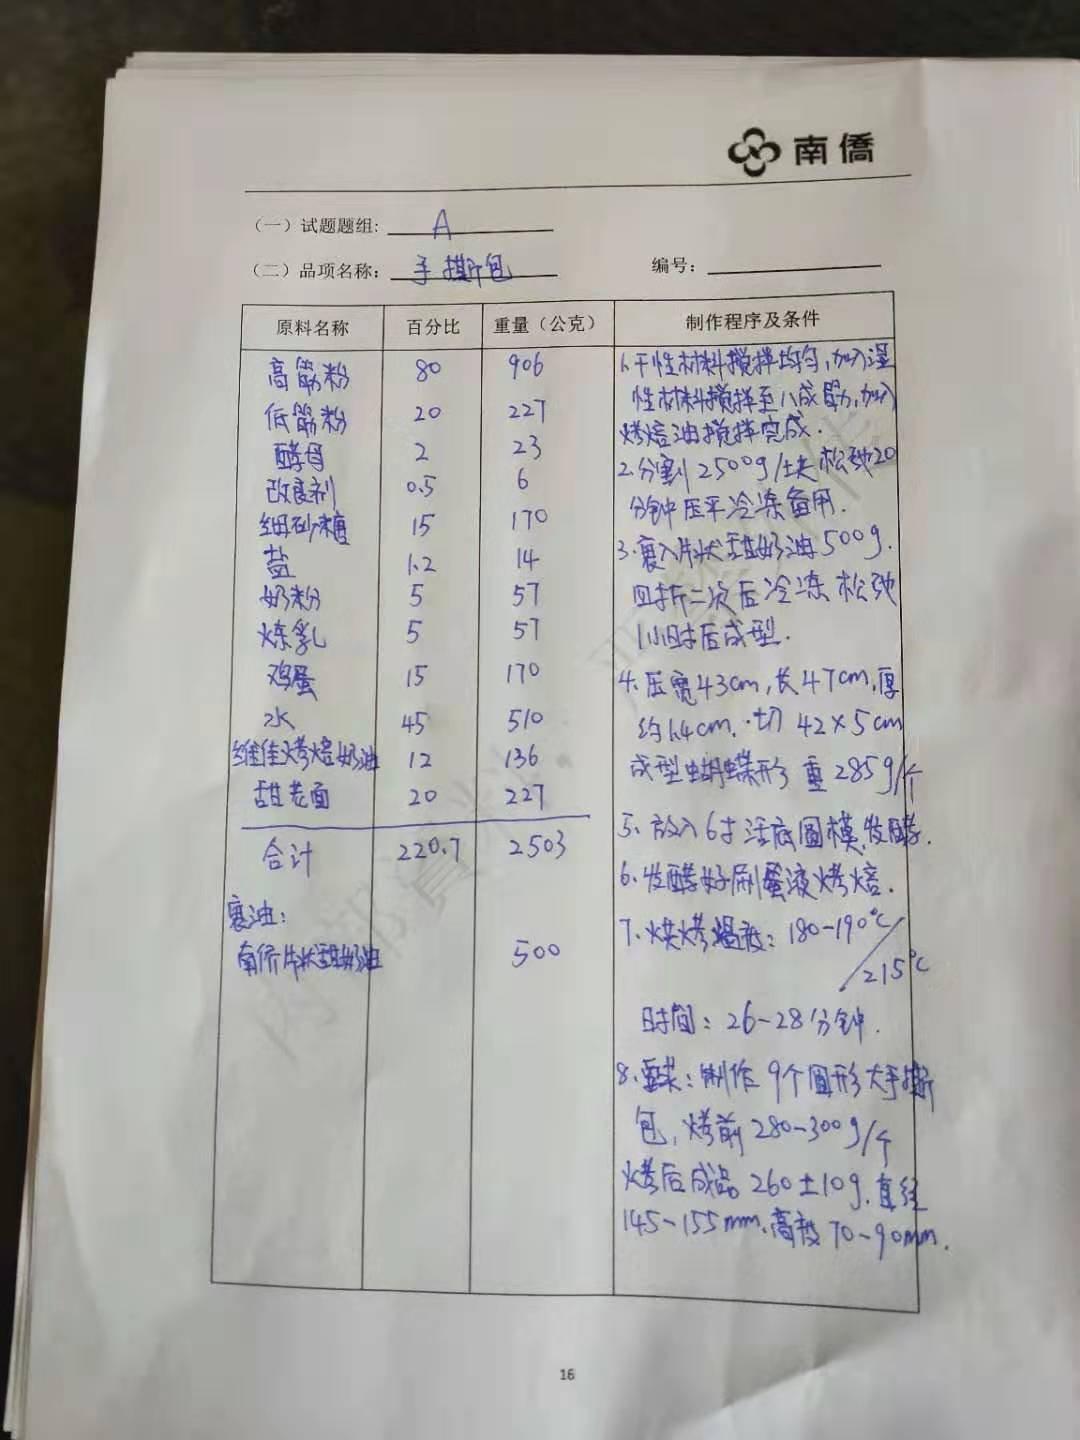 南僑
（一）试题题组: A
（二）品项名称: 手撕包 编号:
原料名称 百分比 重量（公克） 制作程序及条件
高筋粉 80 906
低筋粉 20 227
酵母 2 23
改良剂 0.5 6
细砂糖 15 170
盐 1.2 14
奶粉 5 57
炼乳 5 57
鸡蛋 15 170
水 45 510
维佳烤焙奶油 12 136
甜老面 20 227
合计 220.7 2503
裹油:
南侨片状甜奶油 500
1.干性材料搅拌均匀,加入湿
性材料搅拌至八成筋,加入
烤焙油搅拌完成.
2.分割2500g/块松弛20
分钟压平冷冻备用.
3.裹入片状甜奶油500g.
四折二次后冷冻松弛
1小时后成型.
4.压宽43cm,长47cm,厚
约1.4cm.切42×5cm
成型蝴蝶形 重285g/个
5.放入6寸活底圆模,发酵.
6.发酵好刷蛋液烤焙.
7.烘烤温度: 180-190℃
/215℃
时间: 26-28分钟.
8.要求: 制作9个圆形大手撕
包,烤前280-300g/个
烤后成品260±10g.直径
145-155mm.高度70-90mm.
16